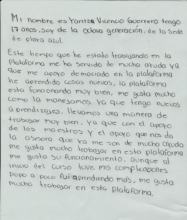 Mi nombre es Yaritza Vicencio Guerrero tengo
17 años soy de la octava generación, de la sede
de clara azul.
Este tiempo que he estado trabajando en la
Plataforma me ha servido de mucho ayuda ya
que me apoyo demaciado en la plataforma
he aprendido cosas nuevas, la plataforma
esta funcionando muy bien, me gusta mucho
como la manejamos, ya que tengo nuevos
aprendizajes, llevamos una manera de
trabajar muy bien, ya que con el apoyo
de los maestros y el apoyo que nos da
la asesora que ya me son de mucha ayuda
me gusta mucho trabajar en esta plataforma
me gusta su funcionamiento, aunque al
inicio del curso tuve mis complicaciones
Poco a poco fui aprendiendo mas, me gusta
mucho trabajar en esta plataforma.